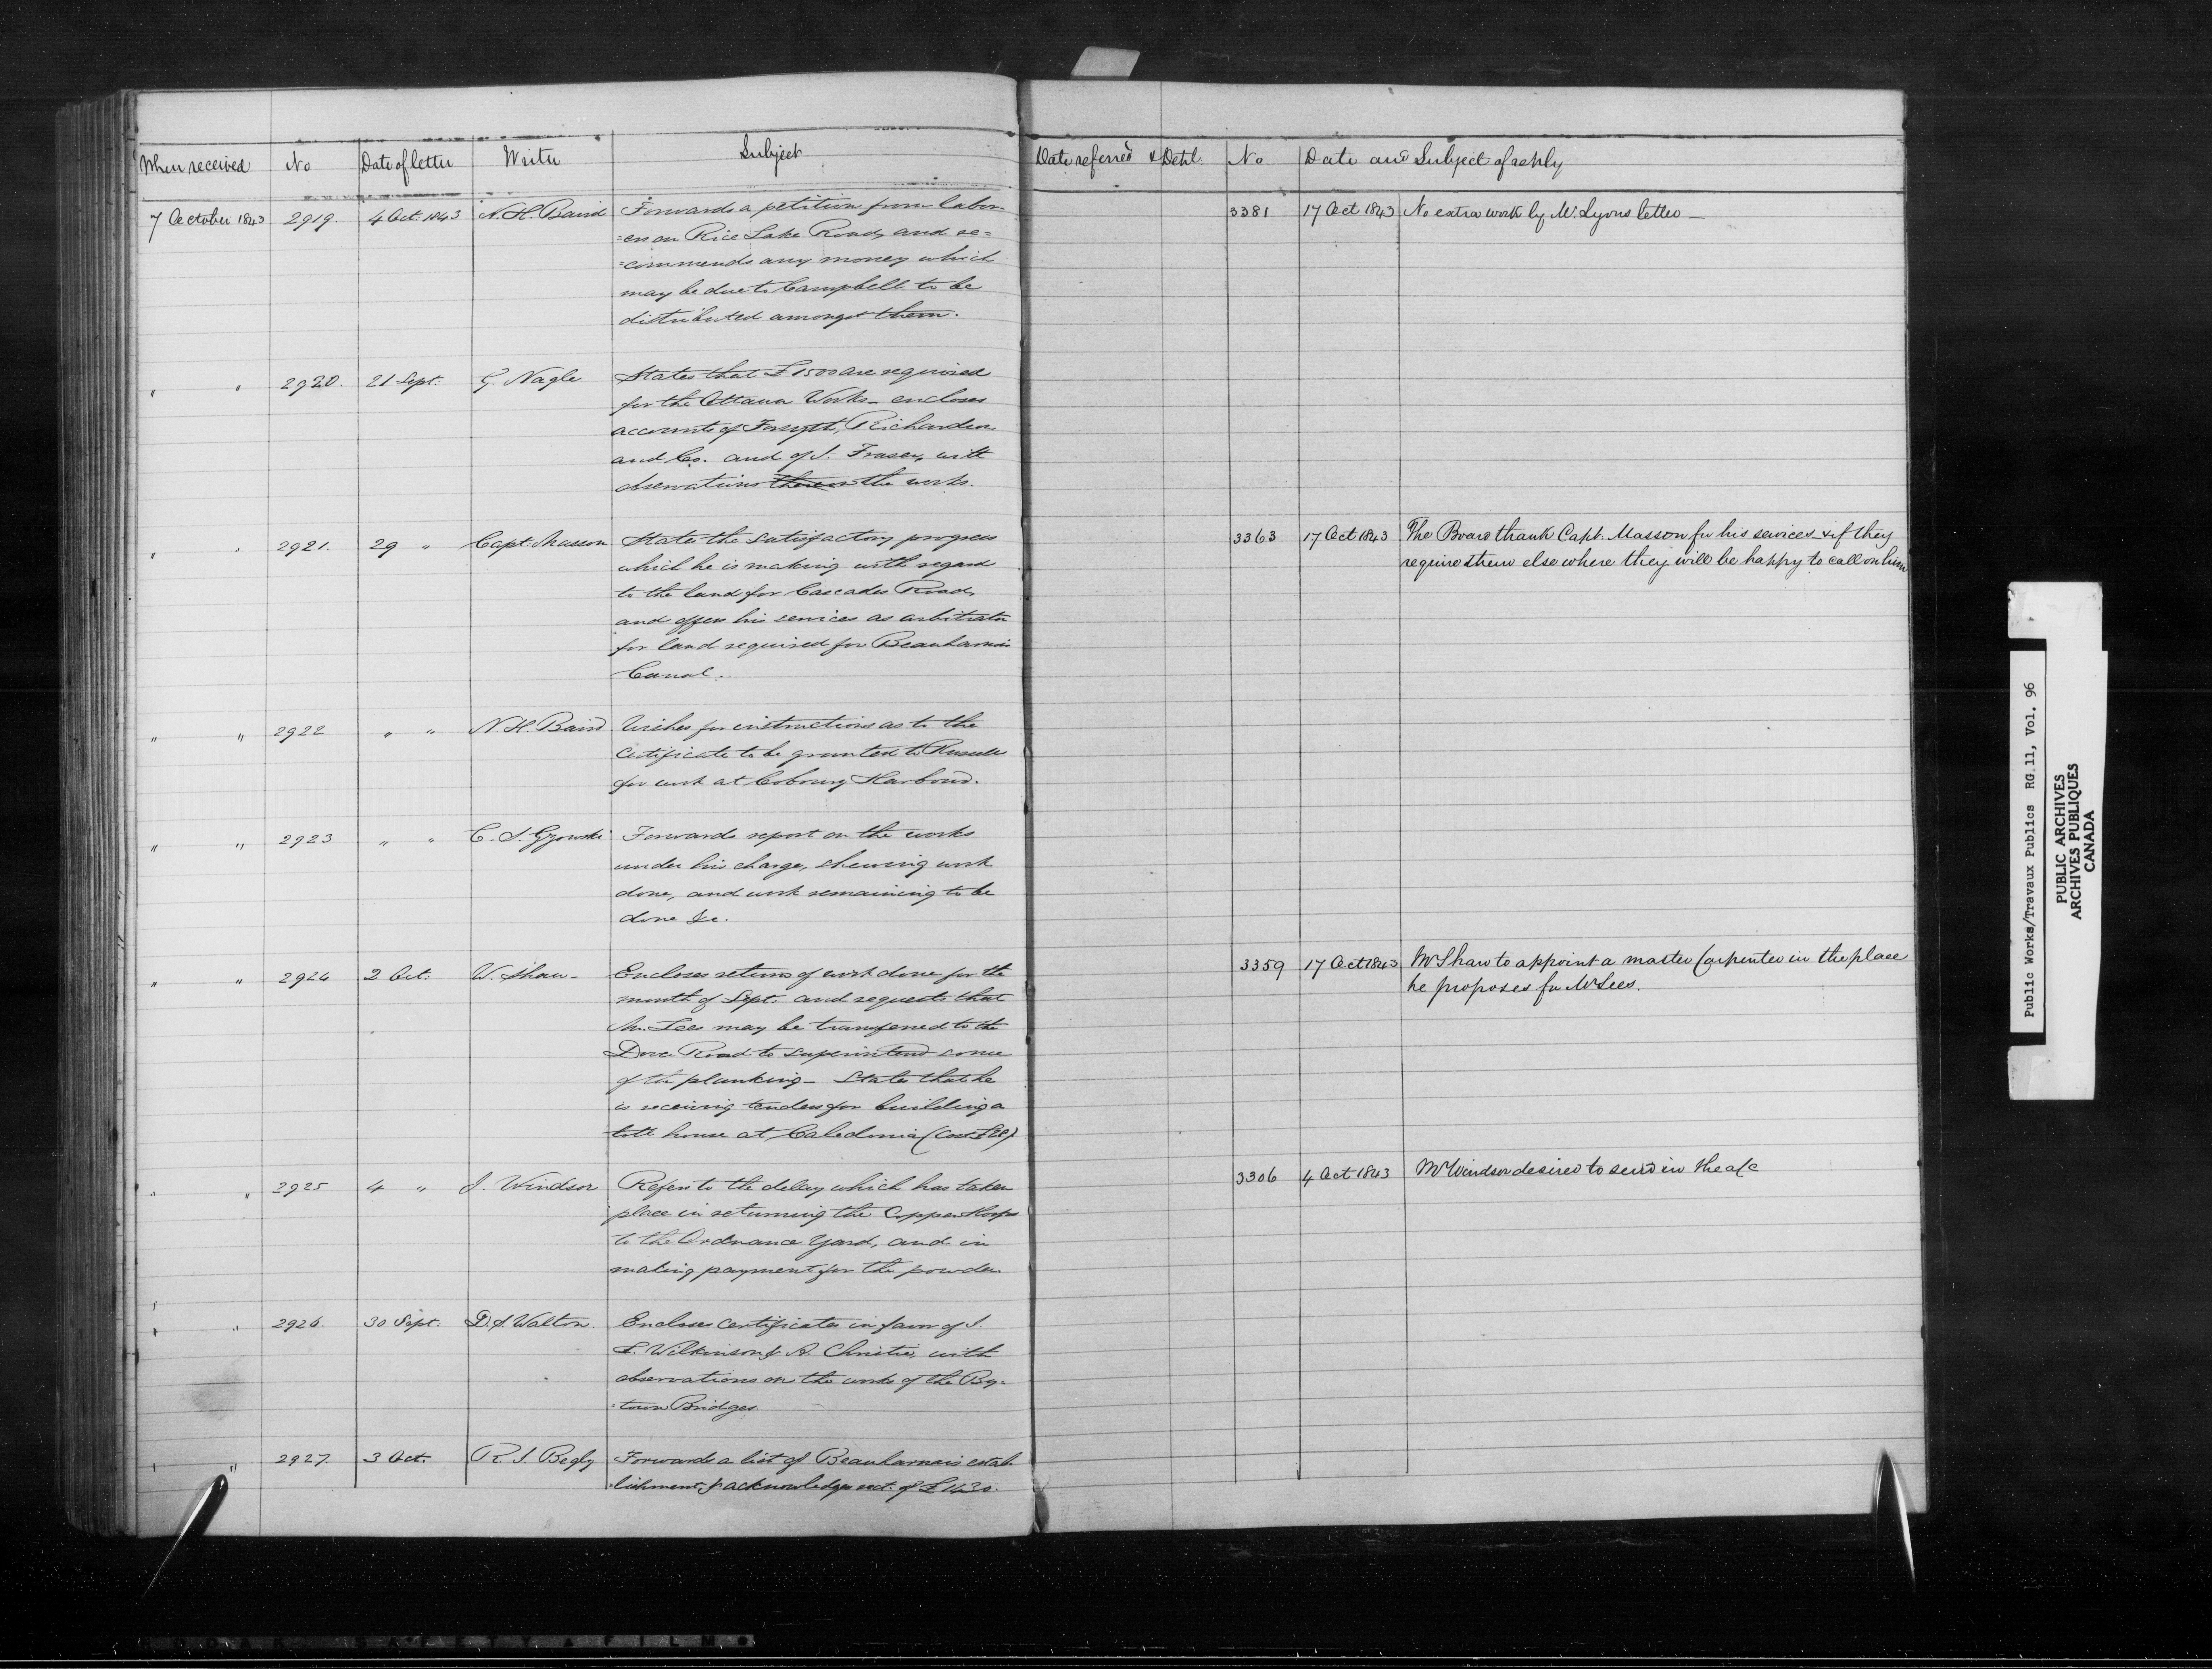 When received No Date of letter Writer Subject
7 October 1843 2919. 4 Oct. 1843 N. H. Baird Forwards a petition from labor-
=ers on Rice Lake Road, and re=
=commends any money which
may be due to Campbell to be
distributed amongst them.
" " 2920. 21 Sept. G. Nagle States that £1500 are required
for the Ottawa Works_ encloses
accounts of Forsyth, Richardson
and Co. and of J. Fraser, with
observations thereon the works.
" " 2921. 29 " Capt. Masson States the satisfactory progress
which he is making with regard
to the land for Cascades Road,
and offers his services as arbitrator
for land required for Beauharnois
Canal.
" " 2922 " " N. H. Baird Wishes for instructions as to the
Certificate to be granted to Russell
for work at Cobourg Harbour.
" " 2923 " " C. S. Gzowski Forwards report on the works
under his charge, shewing work
done, and work remaining to be
done &c.
" " 2924 2 Oct. W. Shaw_ Encloses returns of work done for the
month of Sept. and requests that
Mr. Lees may be transferred to the
Dover Road to superintend some
of the planking_ States that he
is receiving tenders for building a
toll house at Caledonia
" " 2925 4 " J. Windsor Refers to the delay which has taken
place in returning the Copper Hoops
to the Ordnance Yard, and in
making payment for the powder
" " 2926. 30 Sept. D. S. Walton. Encloses certificates in favor of J.
L. Wilkinson & A. Christie, with
observations on the works of the By-
-town Bridges.
" " 2927. 3 Oct. R. S. Begly Forwards a list of Beauharnais estab-
-lishment, & acknowledges rect. of
Date referred & Dehl No Date and Subject of reply
3381 17 Oct 1843 No extra work by Mr. Lyons letter_
3363 17 Oct 1843 The Board thank Capt. Masson for his services & if they
require them else where they will be happy to call on him
3359 17 Oct 1843 Mr Shaw to appoint a master Carpenter in the place
he proposes for Mr Lees.
3306 4 Oct 1843 Mr Windsor desired to send in the a/c
Public Works/Travaux Publics RG 11, Vol. 96
PUBLIC ARCHIVES
ARCHIVES PUBLIQUES
CANADA
KODAK SAFETY FILM